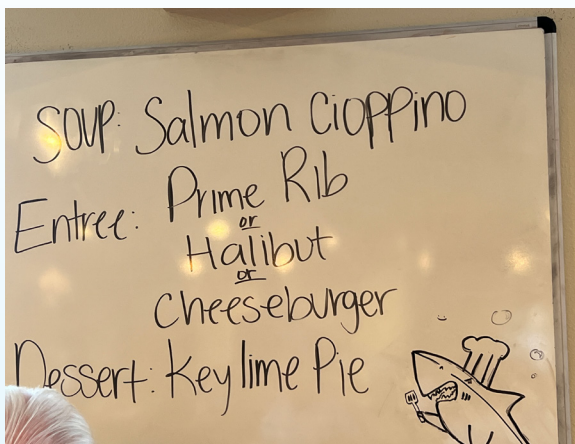 Soup: Salmon Cioppino
Entree: Prime Rib
or
Halibut
or
Cheeseburger
Dessert: Key lime Pie